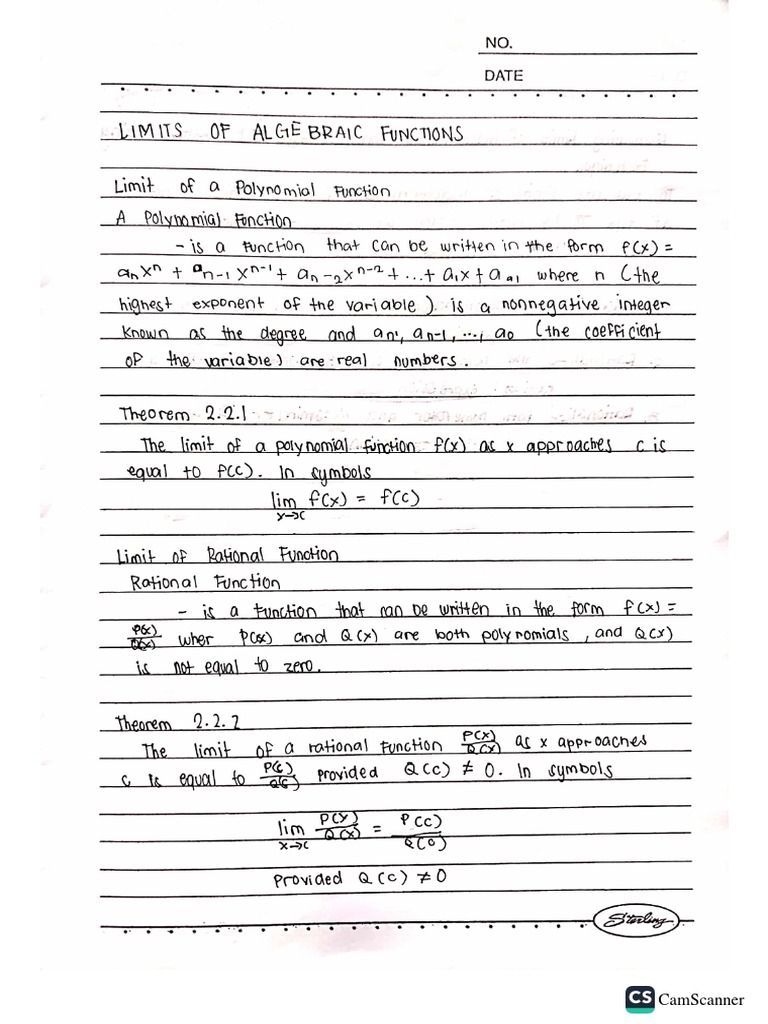 NO.
DATE
LIMITS OF ALGEBRAIC FUNCTIONS
Limit of a Polynomial Function
A Polynomial Function
- is a function that can be written in the form f(x) =
aₙxⁿ + aₙ₋₁xⁿ⁻¹ + aₙ₋₂xⁿ⁻² + ... + a₁x + a where n (the
highest exponent of the variable) is a nonnegative integer
known as the degree and aₙ, aₙ₋₁, ..., a₀ (the coefficient
of the variable) are real numbers.
Theorem 2.2.1
The limit of a polynomial function f(x) as x approaches c is
equal to f(c). In symbols
lim f(x) = f(c)
x→c
Limit of Rational Function
Rational Function
- is a function that can be written in the form f(x) =
P(x)/Q(x) wher P(x) and Q(x) are both polynomials, and Q(x)
is not equal to zero.
Theorem 2.2.2
The limit of a rational function P(x)/Q(x) as x approaches
c is equal to P(c)/Q(c) provided Q(c) ≠ 0. In symbols
lim P(x)/Q(x) = P(c)/Q(c)
x→c
Provided Q(c) ≠ 0
Sterling
CS CamScanner